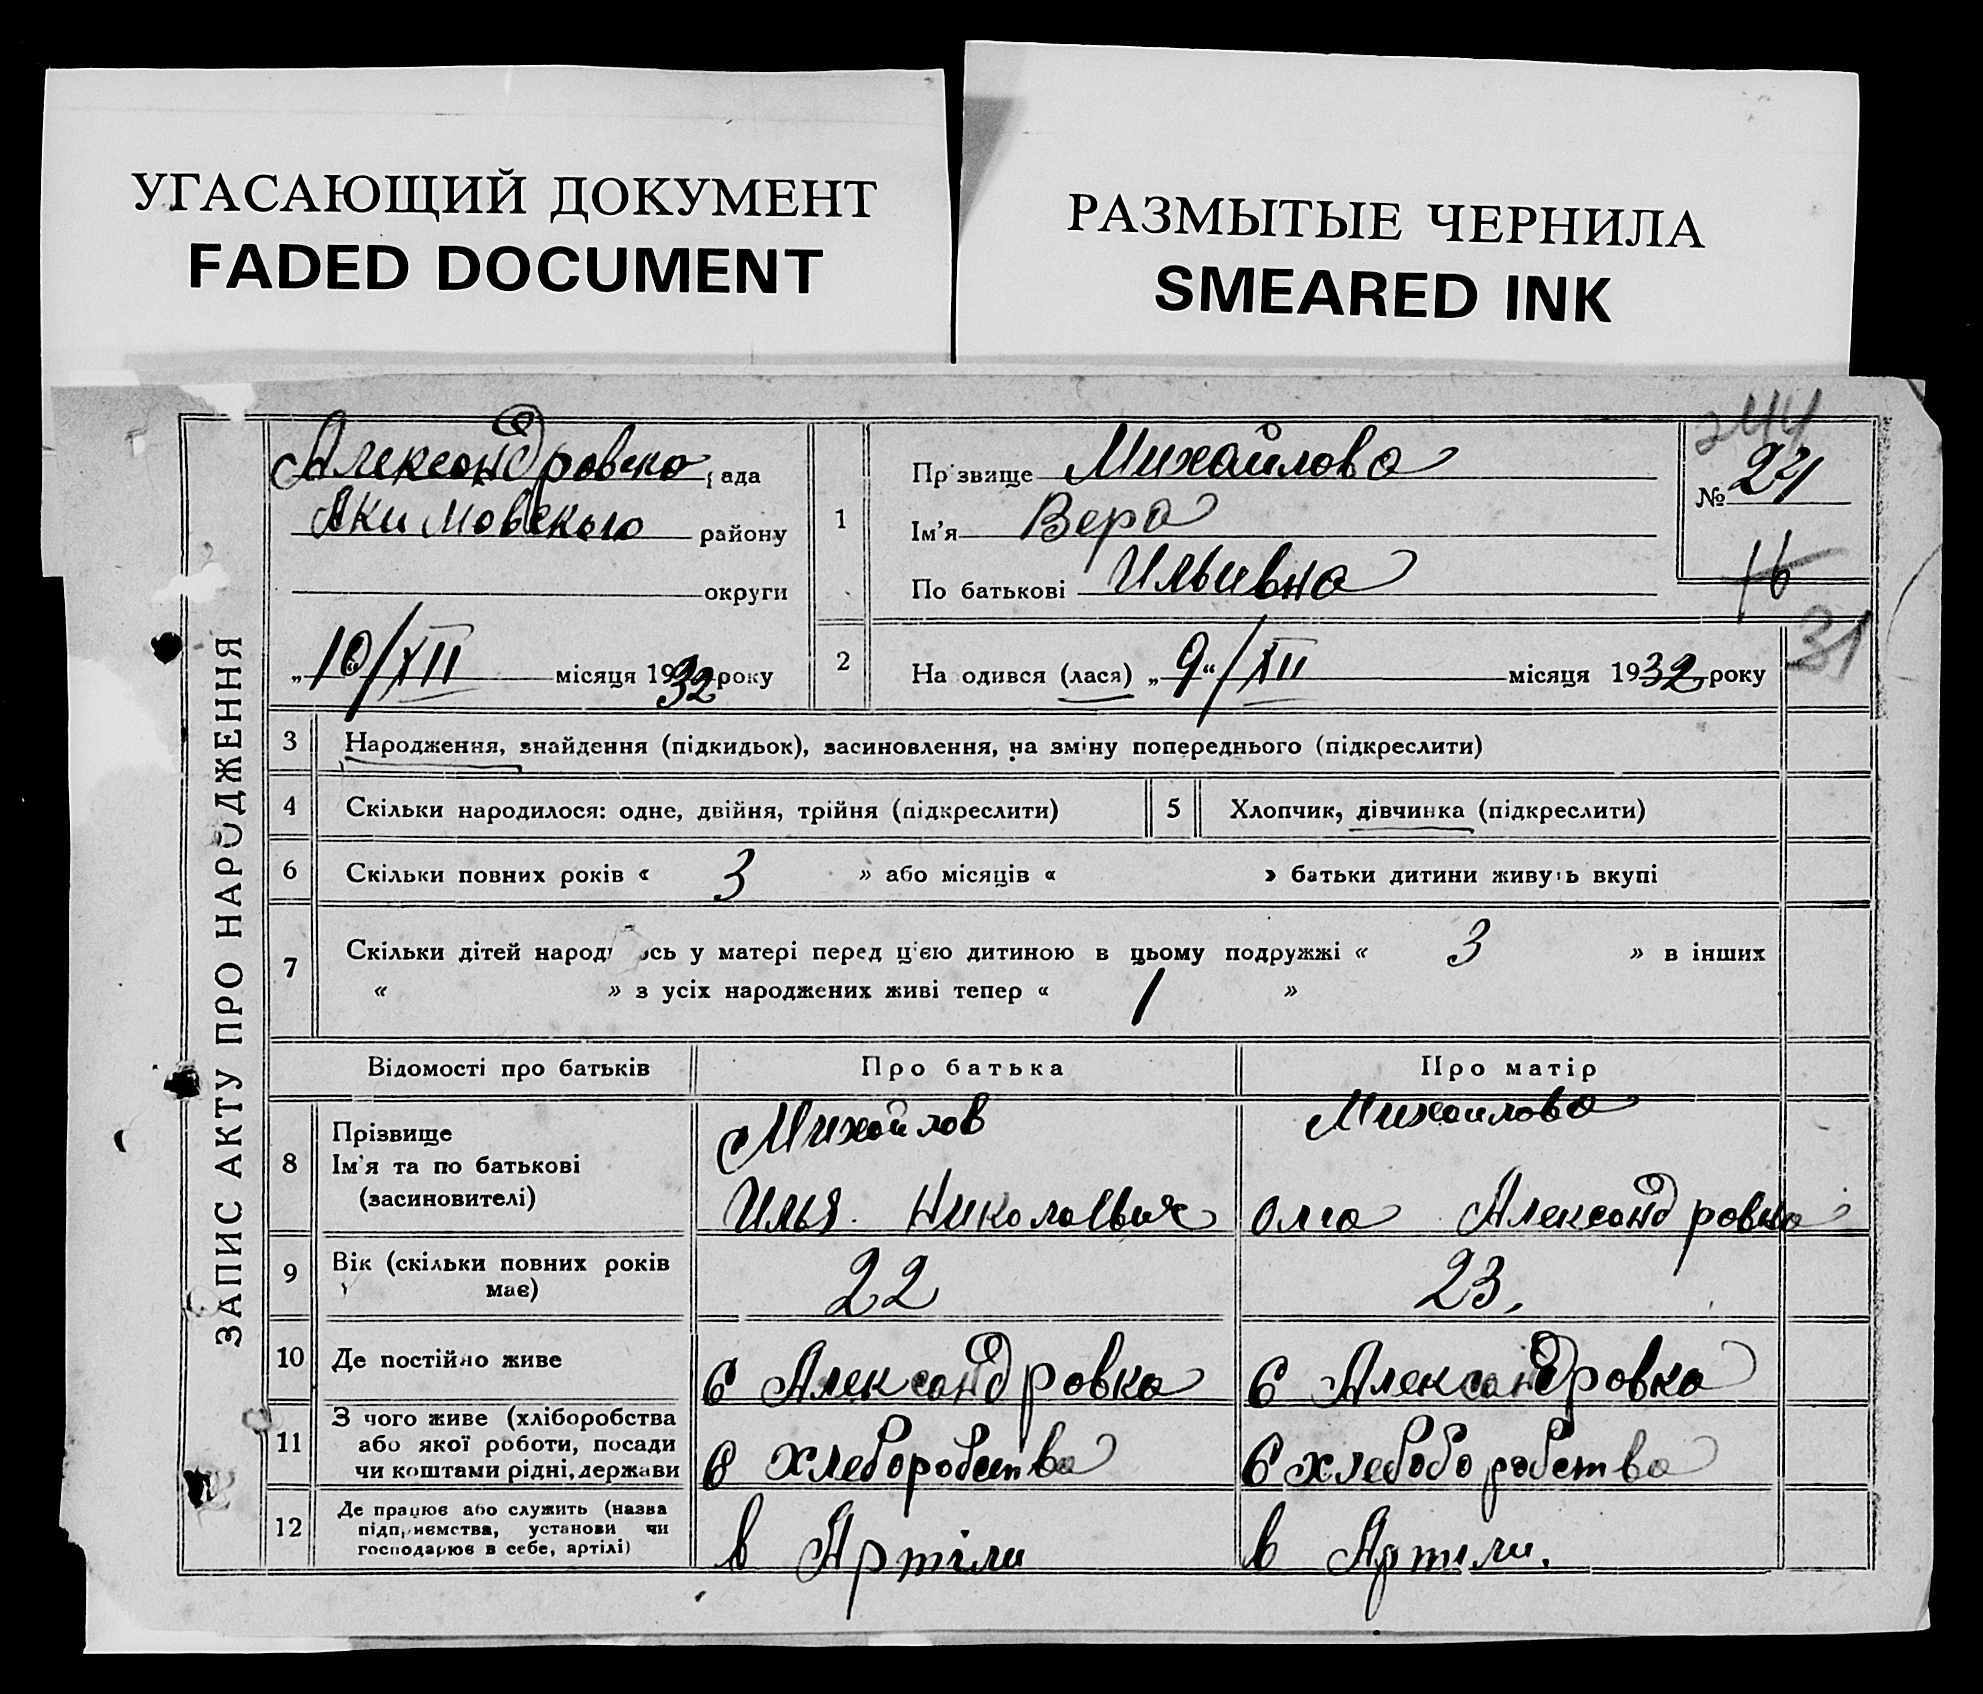 УГАСАЮЩИЙ ДОКУМЕНТ
FADED DOCUMENT
РАЗМЫТЫЕ ЧЕРНИЛА
SMEARED INK
ЗАПИС АКТУ ПРО НАРОДЖЕННЯ
Александровка рада
Якимовского району
округи
„10/XII місяця 1932 року
1
Прізвище Михайлова
Ім'я Вера
По батькові Ильивна
244
№ 24
16
31
2 На одився (лася) „9“/XII місяця 1932 року
3 Народження, знайдення (підкидьок), засиновлення, на зміну попереднього (підкреслити)
4 Скільки народилося: одне, двійня, трійня (підкреслити) 5 Хлопчик, дівчинка (підкреслити)
6 Скільки повних років « 3 » або місяців « » батьки дитини живуть вкупі
7 Скільки дітей народ ось у матері перед ц'єю дитиною в цьому подружжі « 3 » в інших
« » з усіх народжених живі тепер « 1 »
Відомості про батьків Про батька Про матір
8 Прізвище Михайлов Михайлова
Ім'я та по батькові
(засиновителі) Илья Николаевич Олга Александровна
9 Вік (скільки повних років
має) 22 23,
10 Де постійно живе с Александровка с Александровка
11 З чого живе (хліборобства
або якої роботи, посади
чи коштами рідні, держави в хлеборобства с хлебоборобства
12 Де працює або служить (назва
підприємства, установи чи
господарює в себе, артілі) в Артіли в Артили.